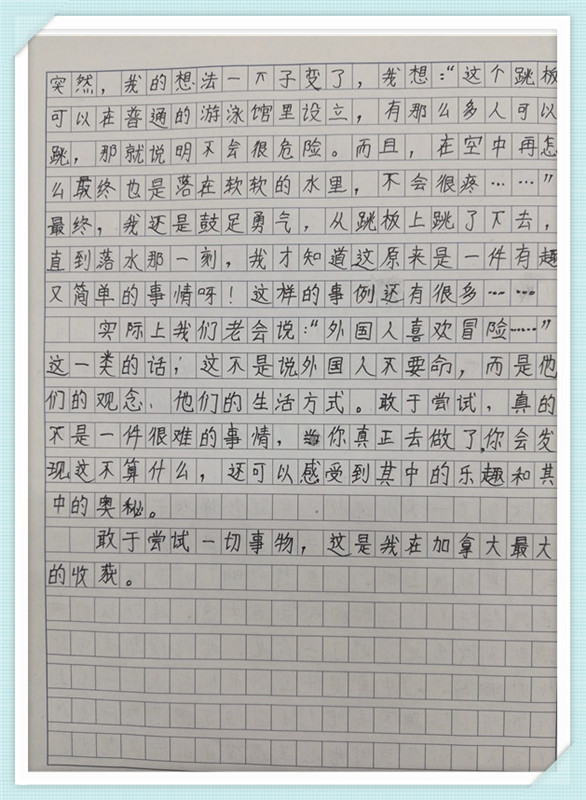 突然，我的想法一下子变了，我想：“这个跳板
可以在普通的游泳馆里设立，有那么多人可以
跳，那就说明不会很危险。而且，在空中再怎
么最终也是落在软软的水里，不会很疼……”
最终，我还是鼓足勇气，从跳板上跳了下去，
直到落水那一刻，我才知道这原来是一件有趣
又简单的事情呀！这样的事例还有很多……
实际上我们老会说：“外国人喜欢冒险……”
这一类的话；这不是说外国人不要命，而是他
们的观念、他们的生活方式。敢于尝试，真的
不是一件很难的事情，当你真正去做了，你会发
现这不算什么，还可以感受到其中的乐趣和其
中的奥秘。
敢于尝试一切事物，这是我在加拿大最大
的收获。